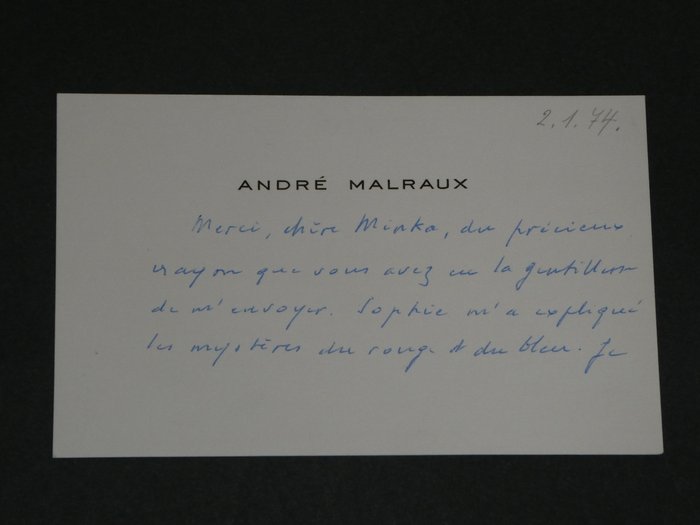 2.1.74.
ANDRÉ MALRAUX
Merci, chère Minka, du précieux
crayon que vous avez eu la gentillesse
de m'envoyer. Sophie m'a expliqué
les mystères du rouge et du bleu. Je